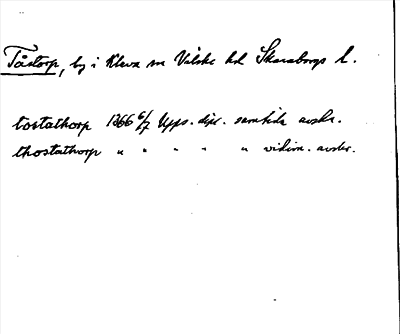 Tåstorp, by i Kleva sn Vilske hd Skaraborgs l.
tostathorp 1366 6/7 Upps. dipl. samtida avskr.
thostathorp " " " " " vidim. avskr.